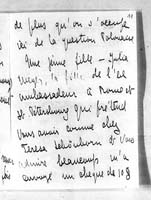 de plus qu'on s'occupe
ici de la question Polonaise
Une jeune fille – Julia
fille de l'ex
ambassadeur à Rome et
St Petersbourg qui prétend
vous avoir connue chez
et vous
admire beaucoup m'a
envoyé un chèque de 10 $